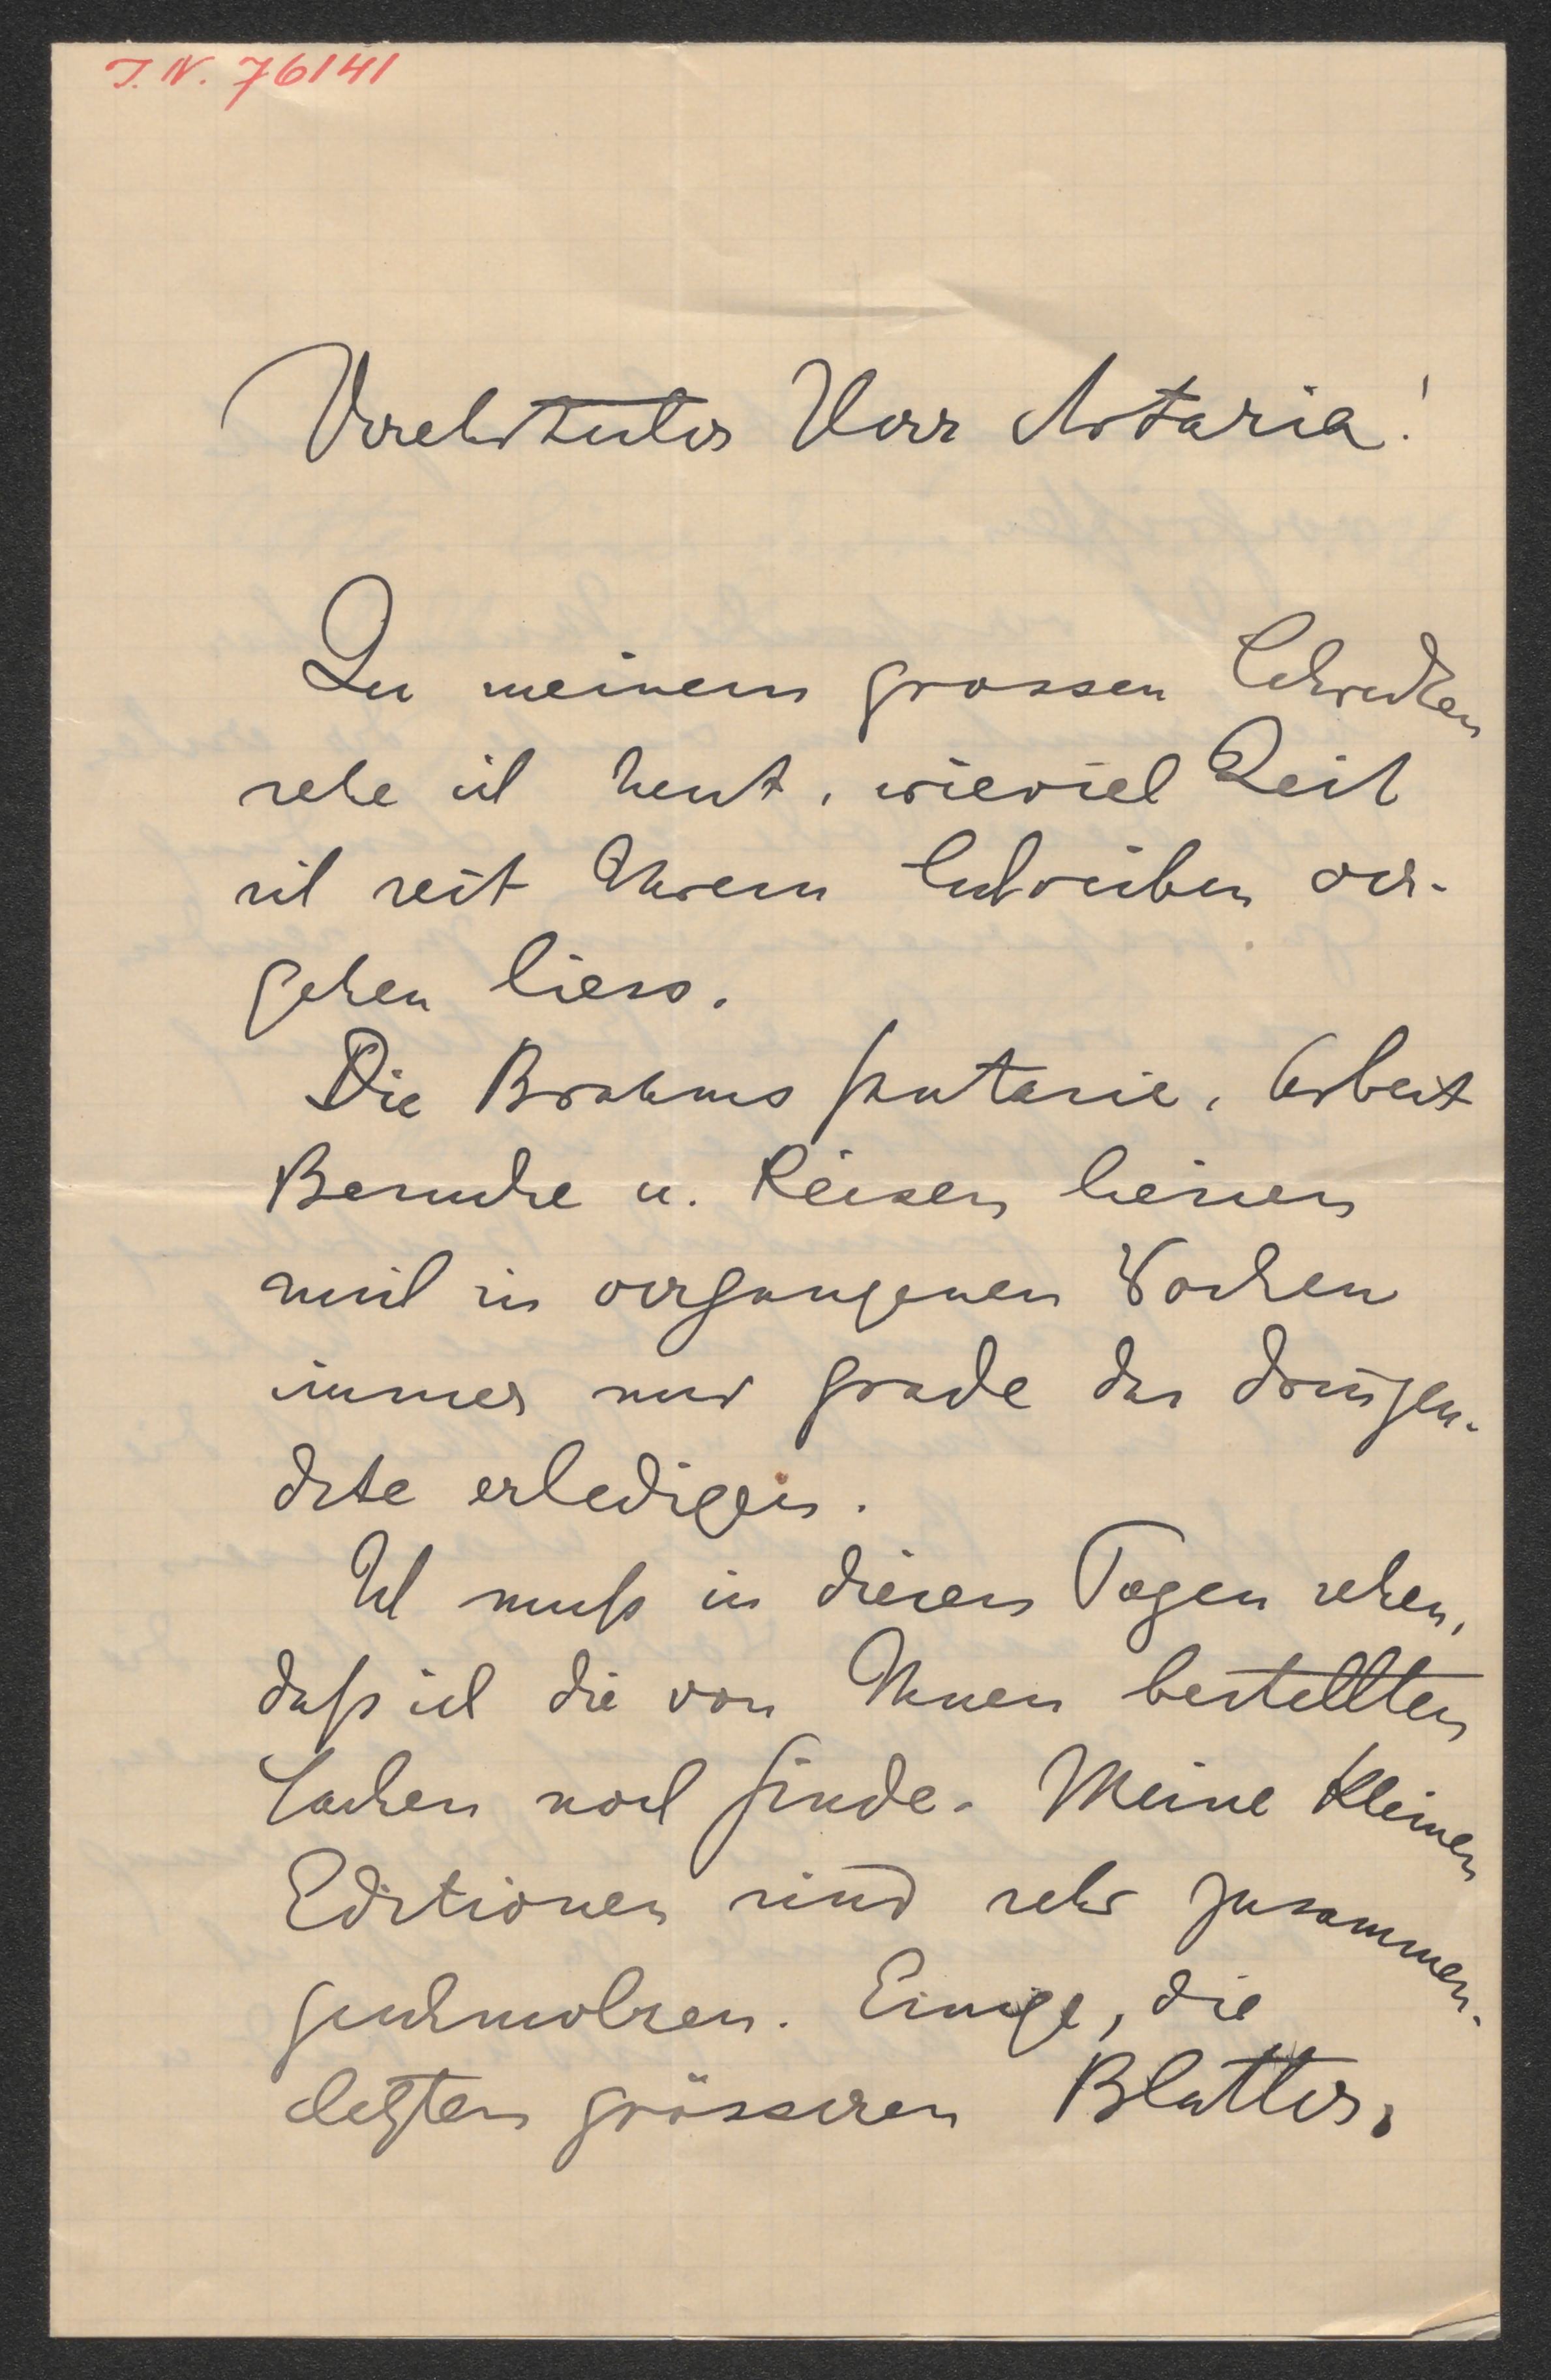 J. N. 76141
Verehrtester Herr Artaria!
Zu meinem grossen Schrecken
sehe ich heut, wieviel Zeit
ich seit Ihrem Schreiben ver-
gehen liess.
Die Brahmsfantasie, Arbeit
Besuche u. Reisen liessen
mich in vergangenen Wochen
immer nur grade das dringen-
dste erledigen.
Ich muß in diesen Tagen sehen,
daß ich die von Ihnen bestellten
Sachen noch finde. Meine kleinen
Editionen sind sehr zusammen-
geschmolzen. Einige, die
letzten grösseren Blätter,